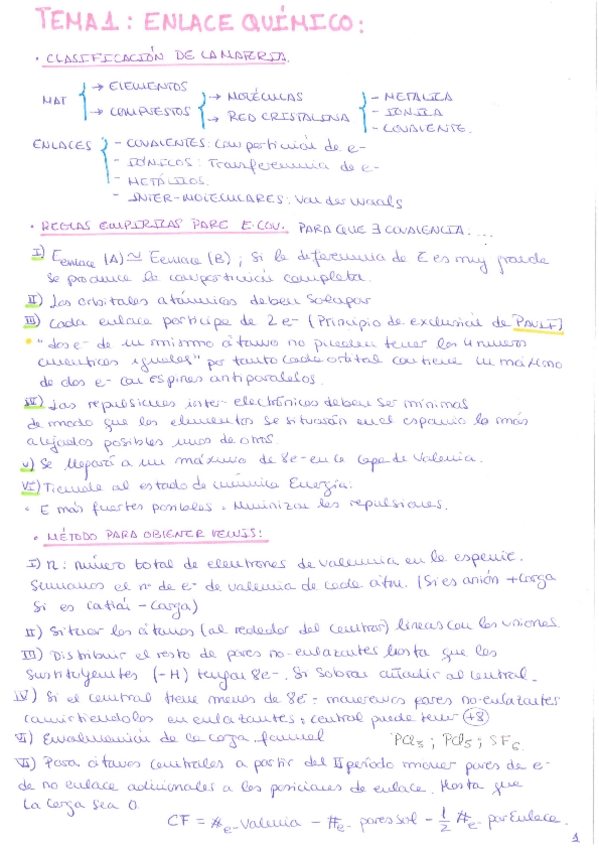 TEMA 1: ENLACE QUÍMICO:
· CLASIFICACIÓN DE LA MATERIA.
MAT → ELEMENTOS
→ COMPUESTOS → MOLÉCULAS
→ RED CRISTALINA - METALICA
- IONICA
- COVALENTE.
ENLACES - COVALENTES: Compartición de e-
- IÓNICOS: Transferencia de e-
- METÁLICOS.
- INTER-MOLECULARES: Van der Waals
· REGLAS EMPIRICAS PARE E. COV. PARA QUE ∃ COVALENCIA: ...
I) Eenlace (A) ~ Eenlace (B); Si la diferencia de E es muy grande
se produce la compartición completa.
II) Los orbitales atómicos deben solapar
III) Cada enlace participe de 2 e- (Principio de exclusión de PAULI)
"dos e- de un mismo átomo no pueden tener los 4 números
cuánticos iguales" por tanto cada orbital contiene un máximo
de dos e- con espines antiparalelos.
IV) Las repulsiones inter-electrónicas deben ser mínimas
de modo que los elementos se situarán en el espacio lo más
alejados posibles unos de otros
V) Se llegará a un máximo de 8e- en la capa de Valencia.
VI) Tiende al estado de mínima Energía:
· E más fuertes posibles · Minimizar las repulsiones.
· MÉTODO PARA OBTENER LEWIS:
I) n: número total de electrones de valencia en la especie.
Sumamos el nº de e- de valencia de cada átm. (Si es anión + carga
Si es catión - carga)
II) Situar los átomos (al rededor del central) líneas con las uniones.
III) Distribuir el resto de pares no-enlazantes hasta que los
sustituyentes (-H) tengan 8e-. Si sobran añadir al central.
IV) Si el central tiene menos de 8e- movemos pares no-enlazantes
convirtiendolos en enlazantes; central puede tener (+8)
V) Envaluación de la carga formal PCl3; PCl5; SF6
VI) Para átomos centrales a partir del II período mover pares de e-
de no enlace adicionales a las posiciones de enlace. Hasta que
la carga sea 0.
CF = #e- Valencia - #e- pares sol - 1/2 #e- por Enlace.
1